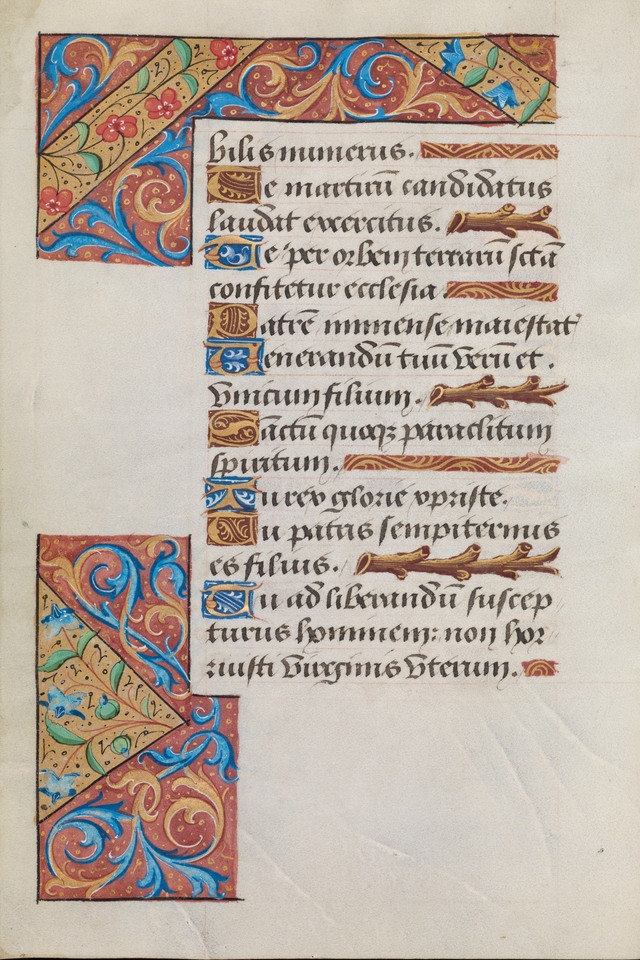 bilis numerus.
Te martirū candidatus
laudat exercitus.
Te per orbem terrarū sctā
confitetur ecclesia
Patrē immense maiestat᷒
Venerandū tuū verū et.
Vnicum filium.
Sanctū quoqꝫ paraclitum
spiritum.
Tu rex glorie xpriste.
Tu patris sempiternus
es filius.
Tu ad liberandū suscep
turus hominem: non hor
ruisti Virginis Vterum.